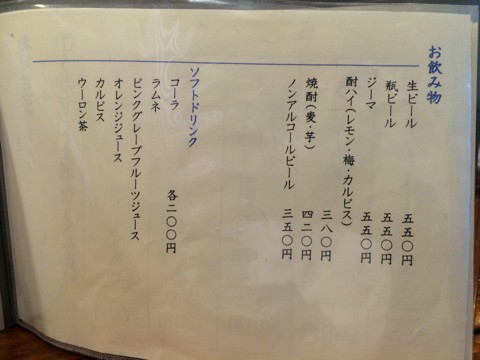 お飲み物
生ビール 五五〇円
瓶ビール 五五〇円
ジーマ 五五〇円
酎ハイ(レモン・梅・カルピス) 三八〇円
焼酎(麦・芋) 四二〇円
ノンアルコールビール 三五〇円
ソフトドリンク
コーラ 各二〇〇円
ラムネ
ピンクグレープフルーツジュース
オレンジジュース
カルピス
ウーロン茶